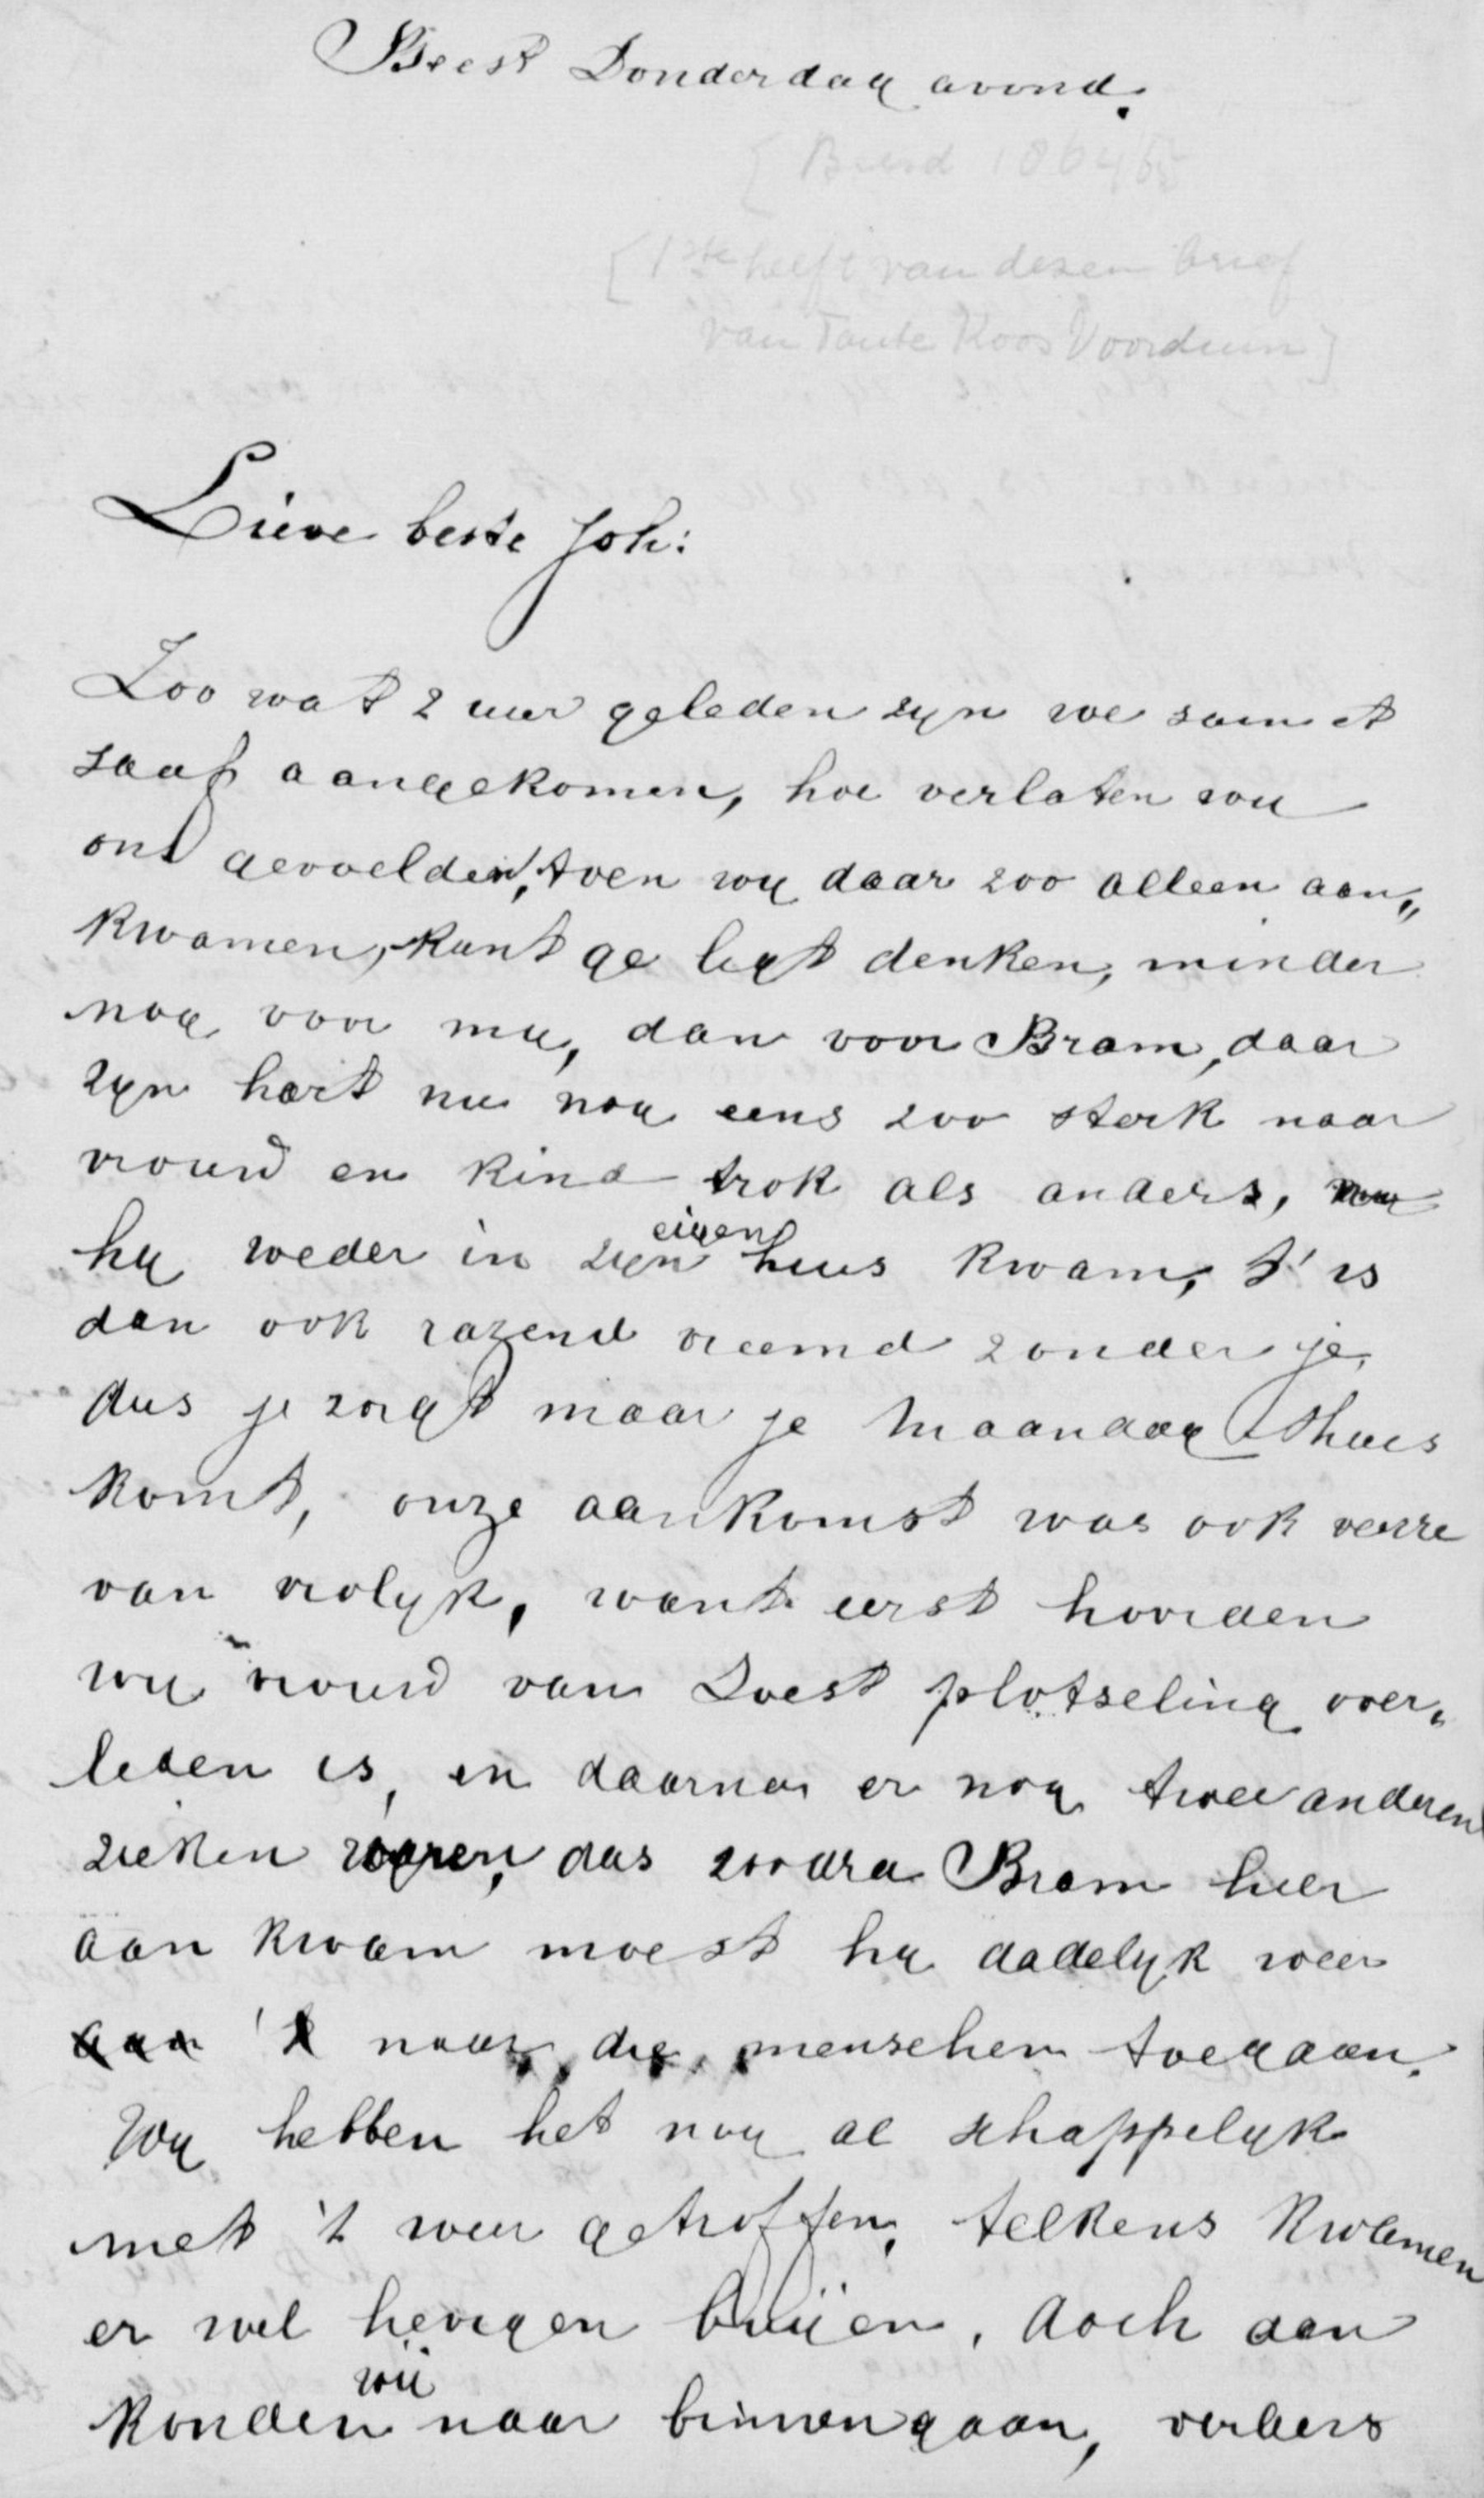 Beest Donderdag avond.
[Beesd 1864/65
[1ste helft van dezen brief
van Tante Koos Voorduin]
Lieve beste Joh:
Zoo wat 2 uur geleden zyn we saam et
saaf aangekomen, hoe verlaten wy
ons gevoelden, toen wy daar zoo alleen aan„
kwamen, kunt ge ligt denken, minder
nog voor my, dan voor Bram, daar
zyn hart nu nog eens zoo sterk naar
vrouw en kind trok als anders, nu
hy weder in zyn eigen huis kwam, t' is
dan ook razend vreemd zonder je,
dus je zorgt maar je Maandag thuis
komt, onze aankomst was ook verre
van vrolyk, want eerst hoorden
wy vrouw van Soest plotseling over„
leden is, en daarna er nog twee anderen
zieken waren, dus zoodra Bram hier
aan kwam moest hy dadelyk weer
aan 't naar die menschen toegaan.
Wy hebben het nog al schappelyk
met 't weer getroffen, telkens kwamen
er wel hevigen buijen, doch dan
konden wij naar binnen gaan, verbers